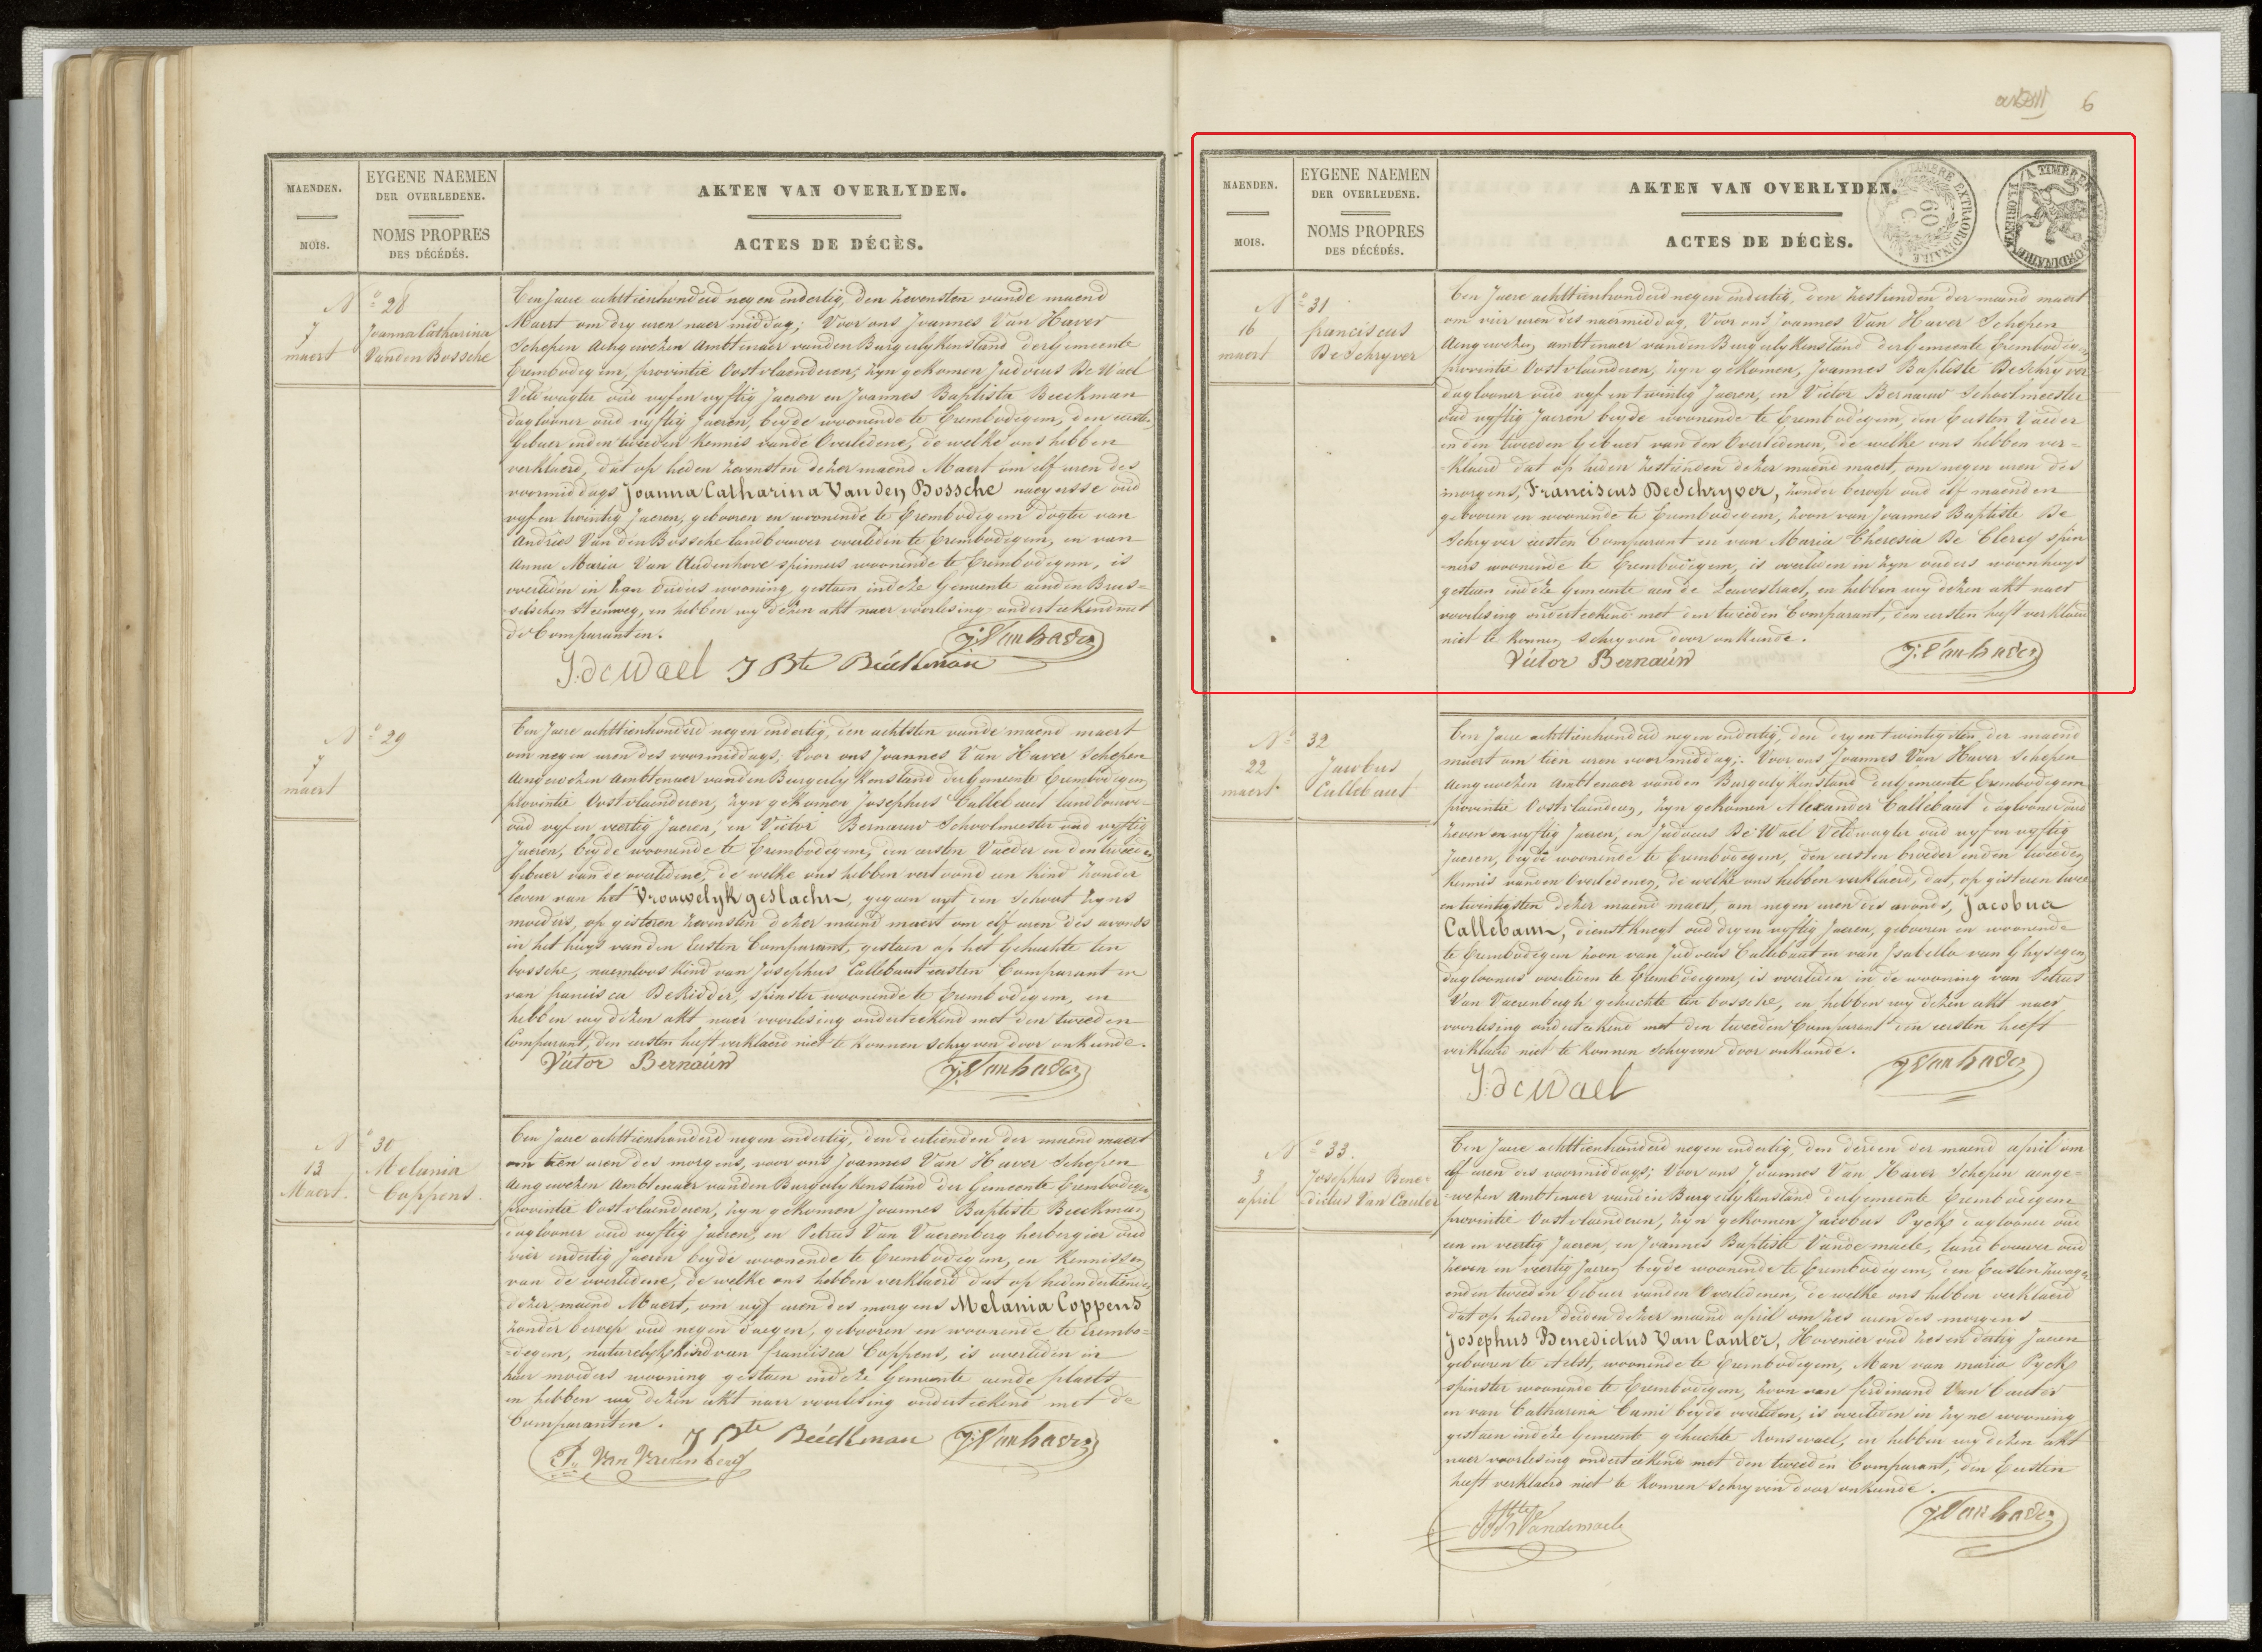 6
MAENDEN.
MOIS.
EYGENE NAEMEN
DER OVERLEDENE.
NOMS PROPRES
DES DÉCÉDÉS.
AKTEN VAN OVERLYDEN.
ACTES DE DÉCÈS.
Nº 28
7
maert
Joanna Catharina
Vanden Bossche
Een Jaere achttienhonderd negen endertig, den zevensten vande maend
Maert om dry uren naer middag; Voor ons Joannes Van Haver
Schepen aengewezen Ambtenaer vanden Burgerlykenstand der Gemeente
Erembodegem, provintie Oostvlaenderen, zyn gekomen Judocus De Wael
Veldwagter oud vyfen vyftig Jaeren en Joannes Baptista Beeckman
daglooner oud vyftig Jaeren, beyde woonende te Erembodegem, den eersten
Gebuer enden tweeden Kennis vande Overledene, de welke ons hebben
verklaerd, dat op heden zevensten dezer maend Maert om elf uren des
voormiddags Joanna Catharina Vanden Bossche naeyersse oud
vyfen twintig Jaeren, gebooren en woonende te Erembodegem dogter van
Andries Van den Bossche landbouwer overleden te Erembodegem, en van
Anna Maria Van Audenhove spinners woonende te Erembodegem, is
overleden in haer Ouders wooning gestaen indeze Gemeente aenden Brus=
selschen Steenweg, en hebben wy dezen akt naer voorlesing onderteekend met
de Comparanten.
J. Van haver
J. de Wael J Bte Beeckman
Nº 29
7
maert
Een Jaere achttienhonderd negen endertig, den achtsten vande maend maert
om negen uren des voormiddags, Voor ons Joannes Van Haver Schepen
aengewezen Ambtenaer vanden Burgerlykenstand der Gemeente Erembodegem,
provintie Oostvlaenderen, zyn gekomen Josephus Callebaut landbouwer
oud vyfen veertig Jaeren, en Victor Bernauw Schoolmeester oud vyftig
Jaeren, beyde woonende te Erembodegem, den eersten Vader en den tweeden
Gebuer van de overledene, de welke ons hebben vertoond een kind zonder
leven van het Vrouwelyk geslacht, gegaen uyt den schoot zyns
moeders, op gisteren zevensten dezer maend maert om elf uren des avonds
in het huys vanden Eersten Comparant, gestaen op het Gehuchte ten
bossche, naemloos kind van Josephus Callebaut eersten Comparant en
van francisca De Ridder, spinster woonende te Erembodegem, en
hebben wy dezen akt naer voorlesing onderteekend met den tweeden
Comparant, den eersten heeft verklaerd niet te konnen schryven door onkunde.
Victor Bernauw J. Van haver
Nº 30
13
Maert.
Melania
Coppens.
Een Jaere achttienhonderd negen endertig, den dertienden der maend maert
om tien uren des morgens, voor ons Joannes Van Haver Schepen
aengewezen Ambtenaer vanden Burgerlykenstand der Gemeente Erembodegem
provintie Oostvlaenderen, zyn gekomen Joannes Baptiste Beeckman,
daglooner oud vyftig Jaeren, en Petrus Van Vaerenberg herbergier oud
vier endertig Jaeren beyde woonende te Erembodegem, en Kennissen
van de overledene, de welke ons hebben verklaerd dat op heden dertienden
dezer maend Maert, om vyf uren des morgens Melania Coppens
zonder beroep oud negen daegen, gebooren en woonende te Erembo=
=degem, naturelyk kind van francisca Coppens, is overleden in
haer moeders wooning gestaen indeze Gemeente aende plaets
en hebben wy dezen akt naer voorlesing onderteekend met de
Comparanten.
J Bte Beeckman J. Van haver
P. Van Vaerenberg
MAENDEN.
MOIS.
EYGENE NAEMEN
DER OVERLEDENE.
NOMS PROPRES
DES DÉCÉDÉS.
AKTEN VAN OVERLYDEN.
ACTES DE DÉCÈS.
TIMBRE EXTRAORDINAIRE
60
C
Nº 31
16
maert
franciscus
De Schryver
Een Jaere achttienhonderd negen endertig, den zestienden der maend maert
om vier uren des naermiddag, Voor ons Joannes Van Haver Schepen
Aengewezen ambtenaer vanden Burgerlykenstand der Gemeente Erembodegem
provintie Oostvlaenderen, zyn gekomen, Joannes Baptiste De Schryver
daglooner oud vyf en twintig Jaeren, en Victor Bernauw Schoolmeester
oud vyftig Jaeren beyde woonende te Erembodegem, den Eersten Vader
enden tweeden Gebuer van den Overledenen, de welke ons hebben ver=
klaerd dat op heden zestienden dezer maend maert, om negen uren des
morgens, Franciscus De Schryver, zonder beroep oud elf maenden
gebooren en woonende te Erembodegem, zoon van Joannes Baptiste De
Schryver eersten Comparant en van Maria Theresia De Clercq spin
ners woonende te Erembodegem, is overleden in zyn ouders woonhuys
gestaen indeze Gemeente aen de Leuvestraet, en hebben wy dezen akt naer
voorlesing onderteekend met den tweeden Comparant, den eersten heeft verklaerd
niet te konnen schryven door onkunde.
Victor Bernauw J. Van haver
Nº 32
22
maert
Jacobus
Callebaut
Een Jaere achttienhonderd negen endertig, den dryen twintigsten der maend
maert om tien uren voormiddag; Voor ons Joannes Van Haver Schepen
Aengewezen Ambtenaer vanden Burgerlykenstand der Gemeente Erembodegem
provintie Oostvlaenderen, zyn gekomen Alexander Callebaut daglooner oud
zeven en vyftig Jaeren, en Judocus De Wael Veldwagter oud vyf en vyftig
Jaeren, beyde woonende te Erembodegem, den eersten broeder enden tweeden
Kennis vanden Overledenen, de welke ons hebben verklaerd, dat, op gisteren twee
en twintigsten dezer maend maert, om negen uren des avonds, Jacobus
Callebaut, dienstknegt oud dryen vyftig Jaeren, gebooren en woonende
te Erembodegem zoon van Judocus Callebaut en van Isabella van Ghysegem
daglooners overleden te Erembodegem, is overleden in de wooning van Petrus
Van Vaerenbergh gehuchte ten bossche, en hebben wy dezen akt naer
voorlesing onderteekend met den tweeden Comparant den eersten heeft
verklaerd niet te konnen schryven door onkunde.
J. Van haver
J. de Wael
Nº 33.
3
april
Josephus Bene=
dictus Van Cauter
Een Jaere achttienhonderd negen endertig, den derden der maend april om
elf uren des voormiddags; Voor ons Joannes Van Haver Schepen aenge=
wezen Ambtenaer vanden Burgerlykenstand der Gemeente Erembodegem
provintie Oostvlaenderen, zyn gekomen Jacobus Pyck daglooner oud
een en veertig Jaeren, en Joannes Baptiste Vande maele, landbouwer oud
zeven en veertig Jaeren beyde woonende te Erembodegem, den Eersten zwager
enden tweeden Gebuer vanden Overledenen, de welke ons hebben verklaerd
dat op heden derden dezer maend april om zes uren des morgens
Josephus Benedictus Van Cauter, Hovenier oud zes en dertig Jaeren
gebooren te Aelst, woonende te Erembodegem, Man van maria Pyck
spinster woonende te Erembodegem, zoon van ferdinand Van Cauter
en van Catharina Cami beyde overleden, is overleden in zyne wooning
gestaen indeze Gemeente gehuchte Ronsevael, en hebben wy dezen akt
naer voorlesing onderteekend met den tweeden Comparant, den Eersten
heeft verklaerd niet te konnen schryven door onkunde.
J. Van haver
Vandemaele